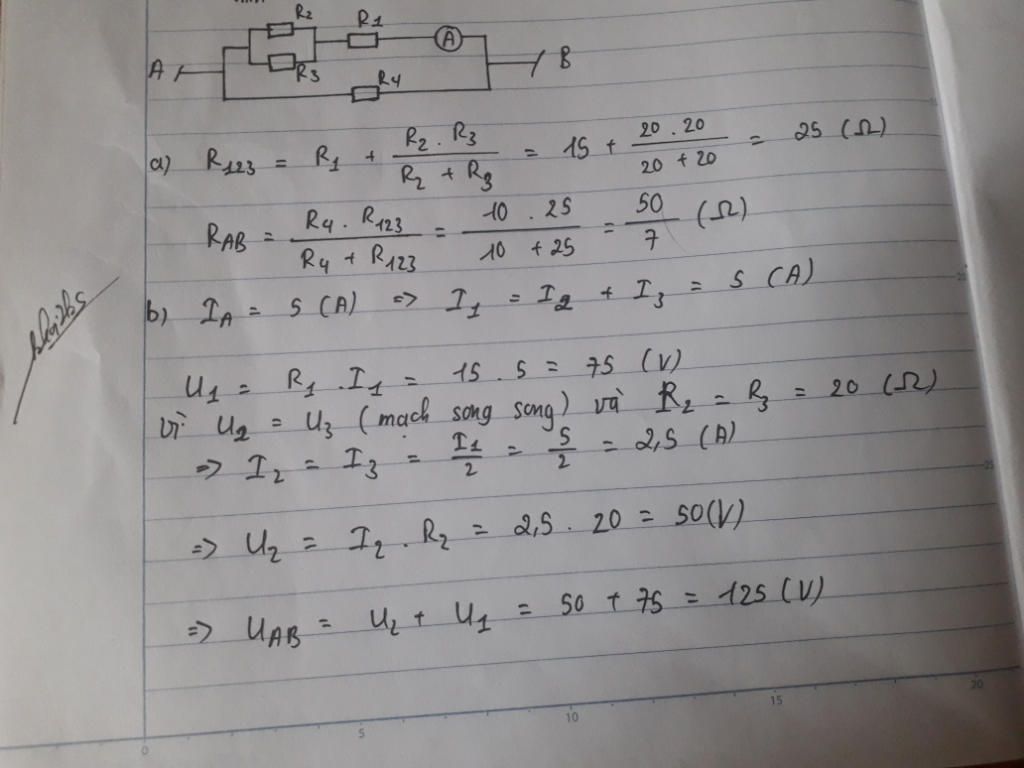 R2 R1 A
A R3 B
R4
a) R123 = R1 + (R2 . R3)/(R2 + R3) = 15 + (20 . 20)/(20 + 20) = 25 (Ω)
RAB = (R4 . R123)/(R4 + R123) = (10 . 25)/(10 + 25) = 50/7 (Ω)
b) IA = 5 (A) => I1 = I2 + I3 = 5 (A)
U1 = R1 . I1 = 15 . 5 = 75 (V)
Vì U2 = U3 (mạch song song) và R2 = R3 = 20 (Ω)
=> I2 = I3 = I1/2 = 5/2 = 2,5 (A)
=> U2 = I2 . R2 = 2,5 . 20 = 50(V)
=> UAB = U2 + U1 = 50 + 75 = 125 (V)
0 5 10 15 20